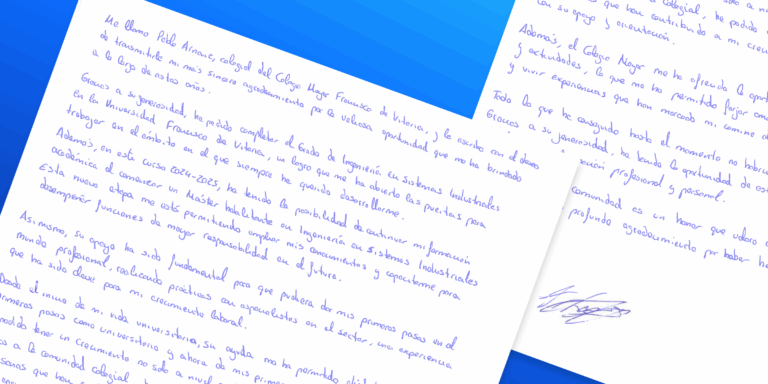 Me llamo Pablo Arnanz, colegial del Colegio Mayor Francisco de Vitoria, y le escribo con el deseo
de transmitirle mi más sincero agradecimiento por la valiosa oportunidad que me ha brindado
a lo largo de estos años.
Gracias a su generosidad, he podido completar el Grado de Ingeniería en Sistemas Industriales
en la Universidad Francisco de Vitoria, un logro que me ha abierto las puertas para
trabajar en el ámbito en el que siempre he querido desarrollarme.
Además, en este curso 2024-2025, he tenido la posibilidad de continuar mi formación
académica al comenzar un Máster habilitante en Ingeniería en Sistemas Industriales
Esta nueva etapa me está permitiendo ampliar mis conocimientos y capacitarme para
desempeñar funciones de mayor responsabilidad en el futuro.
Asimismo, su apoyo ha sido fundamental para que pudiera dar mis primeros pasos en el
mundo profesional, realizando prácticas con especialistas en el sector, una experiencia
que ha sido clave para mi crecimiento laboral.
Desde el inicio de mi vida universitaria, su ayuda me ha permitido
primeros pasos como universitario y ahora de mis
podido tener un crecimiento no solo a nivel
a la comunidad colegial
que han
que han contribuido a mi
con su apoyo y orientación.
Además, el Colegio Mayor me ha ofrecido la
y actividades, lo que me ha permitido forjar
y vivir experiencias que han marcado mi camino
Todo lo que he conseguido hasta el momento no
Gracias a su generosidad, he tenido la oportunidad de
profesional y personal.
comunidad es un honor que valoro
profundo agradecimiento por haber